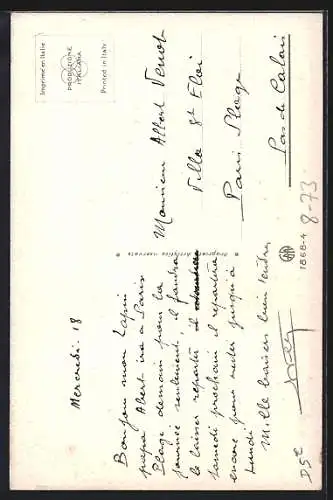 Imprimé en Italie
PRODUZIONE
ITALIANA
Printed in Italy
Mercredi 18
Bonjour mon Lapin
papa Albert ira à Paris
Plage demain pour la
journée seulement. il faudra
le laisser repartir il
samedi prochain il repartira
encore pour rester jusqu'à
Lundi
Mille baisers
Propriété Artistica riservata
1868-4
Monsieur Albert
Villa St Eloi
Paris Plage
Pas de Calais
8-73
D5E